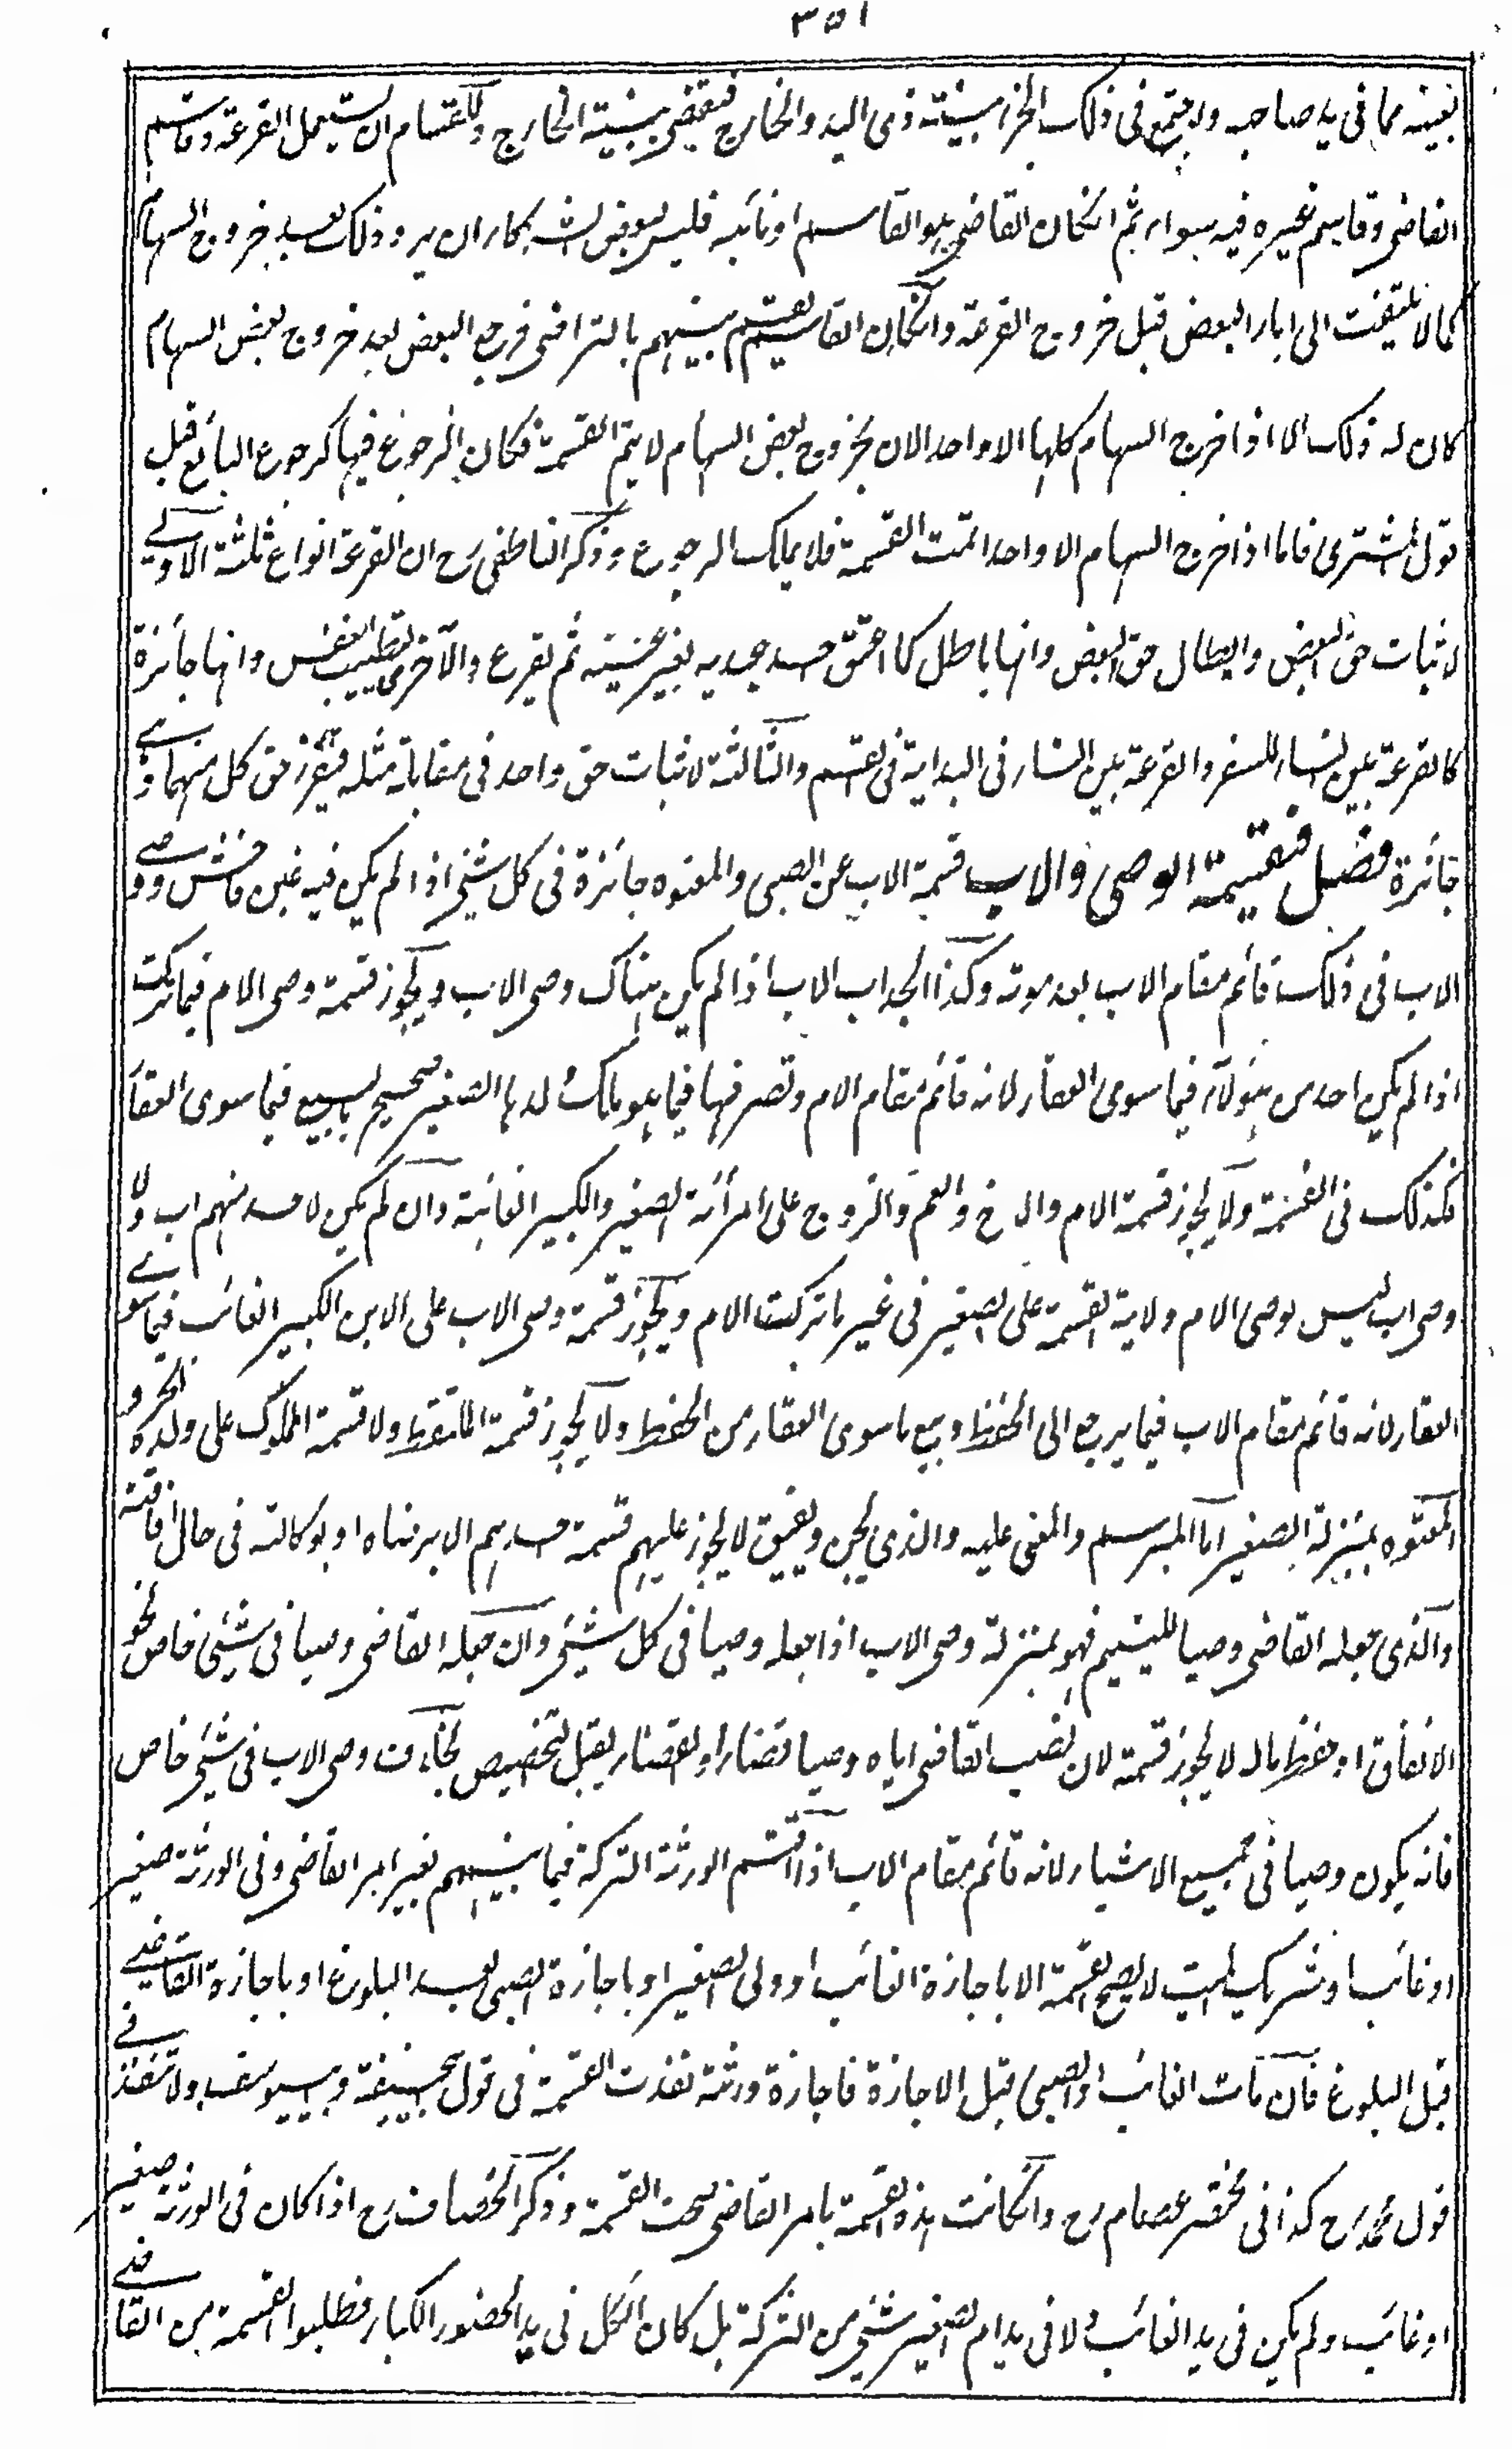 ٣٥١
بعينه مما فى يد صاحبه ولا يجتمع فى ذلك الجزء بينة ذى اليد والخارج فيقضى ببينة الخارج وللقسام ان يستعمل القرعة وقاسم
القاضى وقاسم غيره فيه سواء ثم انكان القاضى هو القاسم او نائبه فليس لبعض الشركاء ان يرد ذلك بعد خروج السهام
كما لا يلتفت الى اباء البعض قبل خروج القرعة وانكان القاسم يقسم بينهم بالتراضى فرجع البعض بعد خروج بعض السهام
كان له ذلك الا اذا خرج السهام كلها الا واحد الان بخروج بعض السهام لا يتم القسمة فكان الرجوع فيها كرجوع البائع قبل
قول المشترى فاما اذا خرج السهام الا واحدا تمت القسمة فلا يملك الرجوع وذكر الناطفى رح ان القرعة انواع ثلثة الاولى
لاثبات حق البعض وابطال حق البعض وانها باطل كما اعتق احد عبديه بغير عينه ثم يقرع والآخرى لتطييب النفس وانها جائزة
كالقرعة بين النساء للسفر والقرعة بين النساء فى البداية فى القسم والثالثة لاثبات حق واحد فى مقابلة مثله فيفرز حق كل منهما وهى
جائزة فصل فى قسمة الوصى والاب قسمة الاب عن الصبى والمعتوه جائزة فى كل شئ اذا لم يكن فيه غبن فاحش ووصى
الاب فى ذلك قائم مقام الاب بعد موته وكذا الجد اب الاب اذا لم يكن هناك وصى الاب ويجوز قسمة وصى الام فيما تركت
اذا لم يكن احد من هؤلاء فيما سوى العقار لانه قائم مقام الام وتصرفها فيما هو ملك لولدها الصغير صحيح بالبيع فيما سوى العقار
فكذلك فى القسمة ولا يجوز قسمة الام والاخ والعم والزوج على امرأته الصغير والكبير الغائبة وان لم يكن لاحد منهم اب ولا
وصى اب ليس لوصى الام ولاية القسمة على الصغير فى غير ما تركت الام ويجوز قسمة وصى الاب على الابن الكبير الغائب فيما سوى
العقار لانه قائم مقام الاب فيما يرجع الى الحفظ وبيع ما سوى العقار من الحفظ ولا يجوز قسمة الملتقط ولا قسمة المملوك على ولده الحر و
المعتوه بمنزلة الصغير اما المبرسم والمغمى عليه والذى يجن ويفيق لا يجوز عليهم قسمة احدهم الا برضاه او بوكالته فى حال افاقته
والذى جعله القاضى وصيا لليتيم فهو بمنزلة وصى الاب اذا جعله وصيا فى كل شئ وان جعله القاضى وصيا فى شئ خاص نحو
الانفاق او حفظ مال لا يجوز قسمته لان نصب القاضى اياه وصيا قضاء والقضاء يقبل التخصيص بخلاف وصى الاب فى شئ خاص
فانه يكون وصيا فى جميع الاشياء لانه قائم مقام الاب اذا اقتسم الورثة التركة فيما بينهم بغير امر القاضى وفى الورثة صغير
او غائب او شريك الميت لا يصح القسمة الا باجازة الغائب او ولى الصغير او باجازة الصبى بعد البلوغ او باجازة القاضى
قبل البلوغ فان مات الغائب او الصبى قبل الاجازة فاجازة ورثته نفذت القسمة فى قول ابيحنيفة وابييوسف ولا تنفذ فى
قول محمد رح كذا فى مختصر عصام رح وانكانت هذه القسمة بامر القاضى صحت القسمة وذكر الخصاف رح اذا كان فى الورثة صغير
او غائب ولم يكن فى يد الغائب ولا فى يد ام الصغير شئ من التركة بل كان الكل فى يد الحضور الكبار فطلبوا القسمة من القاضى